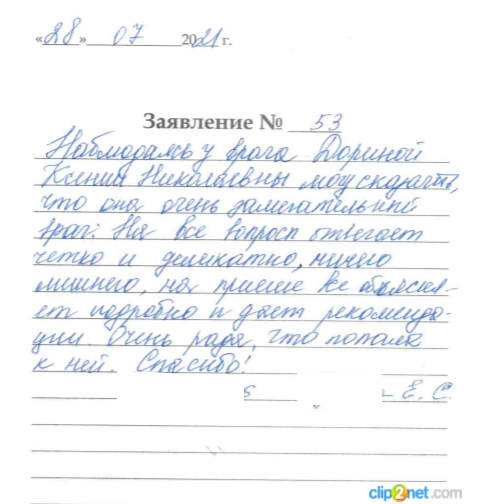 «28» 07 2021 г.
Заявление № 53
Наблюдаясь у врача Дориной
Ксении Николаевны могу сказать,
что она очень замечательный
врач. На все вопросы отвечает
четко и деликатно, ничего
лишнего, на приеме все объясня-
ет подробно и дает рекоменда-
ции. Очень рада, что попала
к ней. Спасибо!
Е. С.
clip2net.com